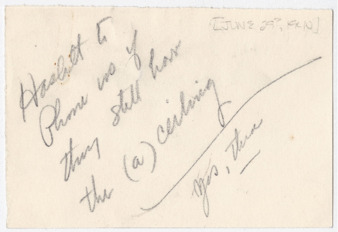 [JUNE 29, FRN]
Haslett to
Phone us if
they still have
the (a) ceiling
Yes, thu